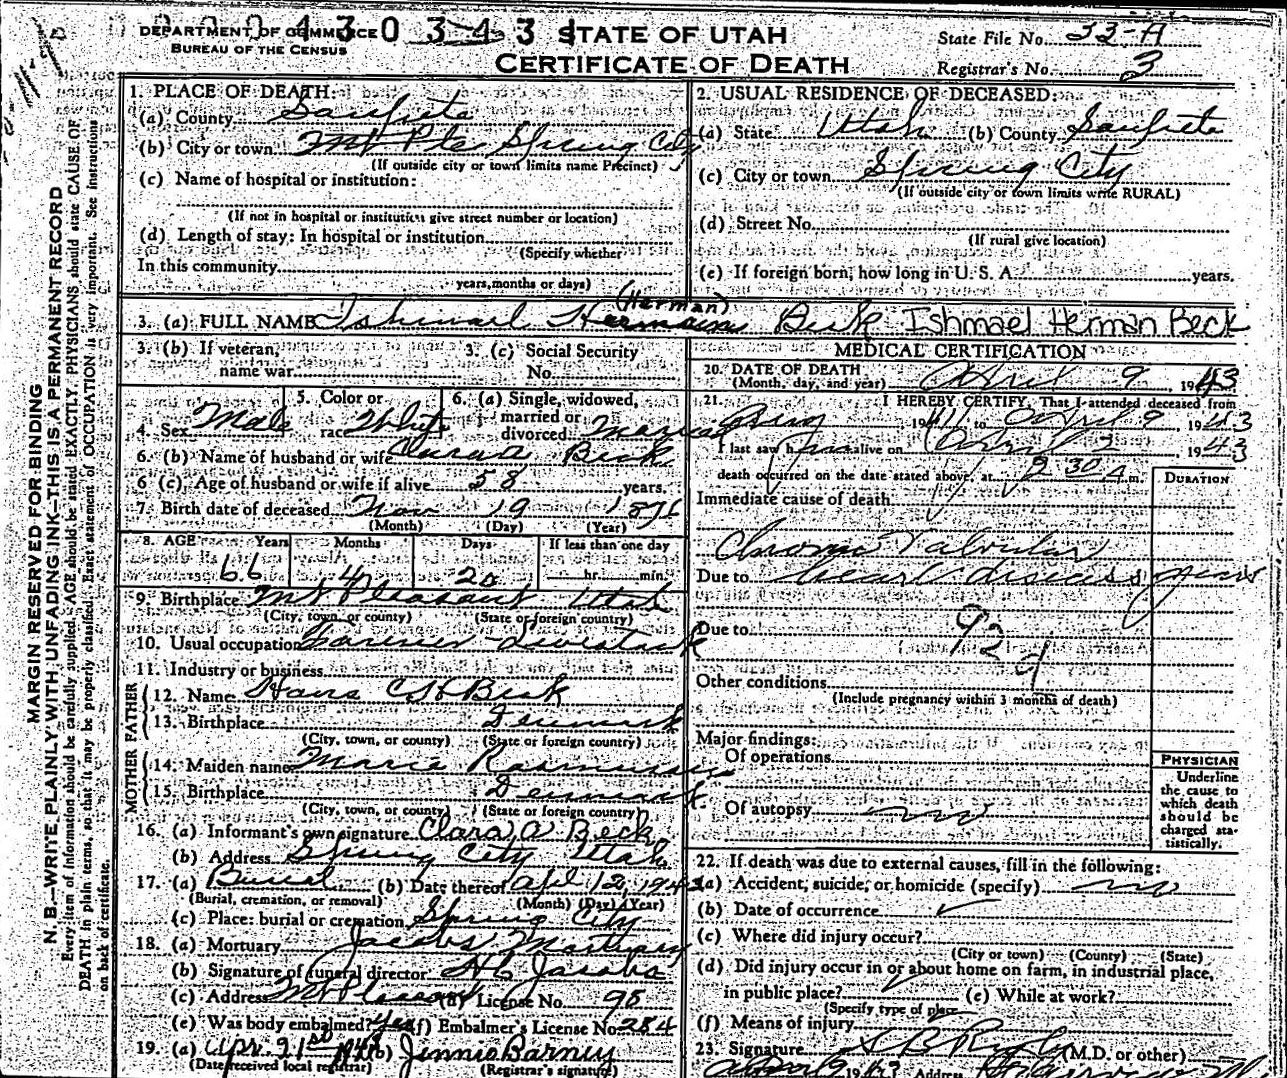 DEPARTMENT OF COMMERCE
BUREAU OF THE CENSUS
STATE OF UTAH
CERTIFICATE OF DEATH
State File No. 22-A
Registrar's No. 3
MARGIN RESERVED FOR BINDING
N. B.—WRITE PLAINLY, WITH UNFADING INK—THIS IS A PERMANENT RECORD
Every item of information should be carefully supplied. AGE should be stated EXACTLY. PHYSICIANS should state CAUSE OF
DEATH in plain terms, so that it may be properly classified. Exact statement of OCCUPATION is very important. See instructions
on back of certificate.
1. PLACE OF DEATH:
(a) County Sanpete
(b) City or town Mt Pls Spring City
(If outside city or town limits name Precinct)
(c) Name of hospital or institution:
(If not in hospital or institution give street number or location)
(d) Length of stay: In hospital or institution
(Specify whether
In this community
years, months or days)
2. USUAL RESIDENCE OF DECEASED:
(a) State Utah (b) County Sanpete
(c) City or town Spring City
(If outside city or town limits write RURAL)
(d) Street No.
(If rural give location)
(e) If foreign born, how long in U. S. A. years.
(Herman)
3. (a) FULL NAME Ishmael Beck Ishmael Herman Beck
3. (b) If veteran,
name war
3. (c) Social Security
No.
4. Sex Male
5. Color or
race White
6. (a) Single, widowed,
married or
divorced Married
6. (b) Name of husband or wife Clara A Beck
6 (c) Age of husband or wife if alive 58 years.
7. Birth date of deceased Nov 19 1876
(Month) (Day) (Year)
8. AGE Years Months Days If less than one day
66 4 20 hr. min.
9. Birthplace Mt Pleasant Utah
(City, town, or county) (State or foreign country)
10. Usual occupation Farmer Livestock
11. Industry or business
FATHER
12. Name Hans C H Beck
13. Birthplace Denmark
(City, town, or county) (State or foreign country)
MOTHER
14. Maiden name Marie Rasmussen
15. Birthplace Denmark
(City, town, or county) (State or foreign country)
16. (a) Informant's own signature Clara A Beck
(b) Address Spring City Utah
17. (a) Burial (b) Date thereof Apr 12, 1943
(Burial, cremation, or removal) (Month) (Day) (Year)
(c) Place: burial or cremation Spring City
18. (a) Mortuary Jacobs Mortuary
(b) Signature of funeral director H C Jacobs
(c) Address Mt Pleasant (d) License No. 98
(e) Was body embalmed? Yes (f) Embalmer's License No. 284
19. (a) Apr. 21st 1943 (b) Jennie Barney
(Date received local registrar) (Registrar's signature)
MEDICAL CERTIFICATION
20. DATE OF DEATH
(Month, day, and year) April 9, 1943
21. I HEREBY CERTIFY, That I attended deceased from
1941 to April 9 1943
I last saw h alive on April 2 1943
death occurred on the date stated above, at 9 30 A m.
DURATION
Immediate cause of death
Chronic Valvular
Due to heart disease years
Due to
92 d
Other conditions
(Include pregnancy within 3 months of death)
Major findings:
Of operations
Of autopsy no
PHYSICIAN
Underline
the cause to
which death
should be
charged sta-
tistically.
22. If death was due to external causes, fill in the following:
(a) Accident, suicide, or homicide (specify) no
(b) Date of occurrence
(c) Where did injury occur?
(City or town) (County) (State)
(d) Did injury occur in or about home on farm, in industrial place,
in public place? (e) While at work?
(Specify type of place
(f) Means of injury
23. Signature (M.D. or other)
Address